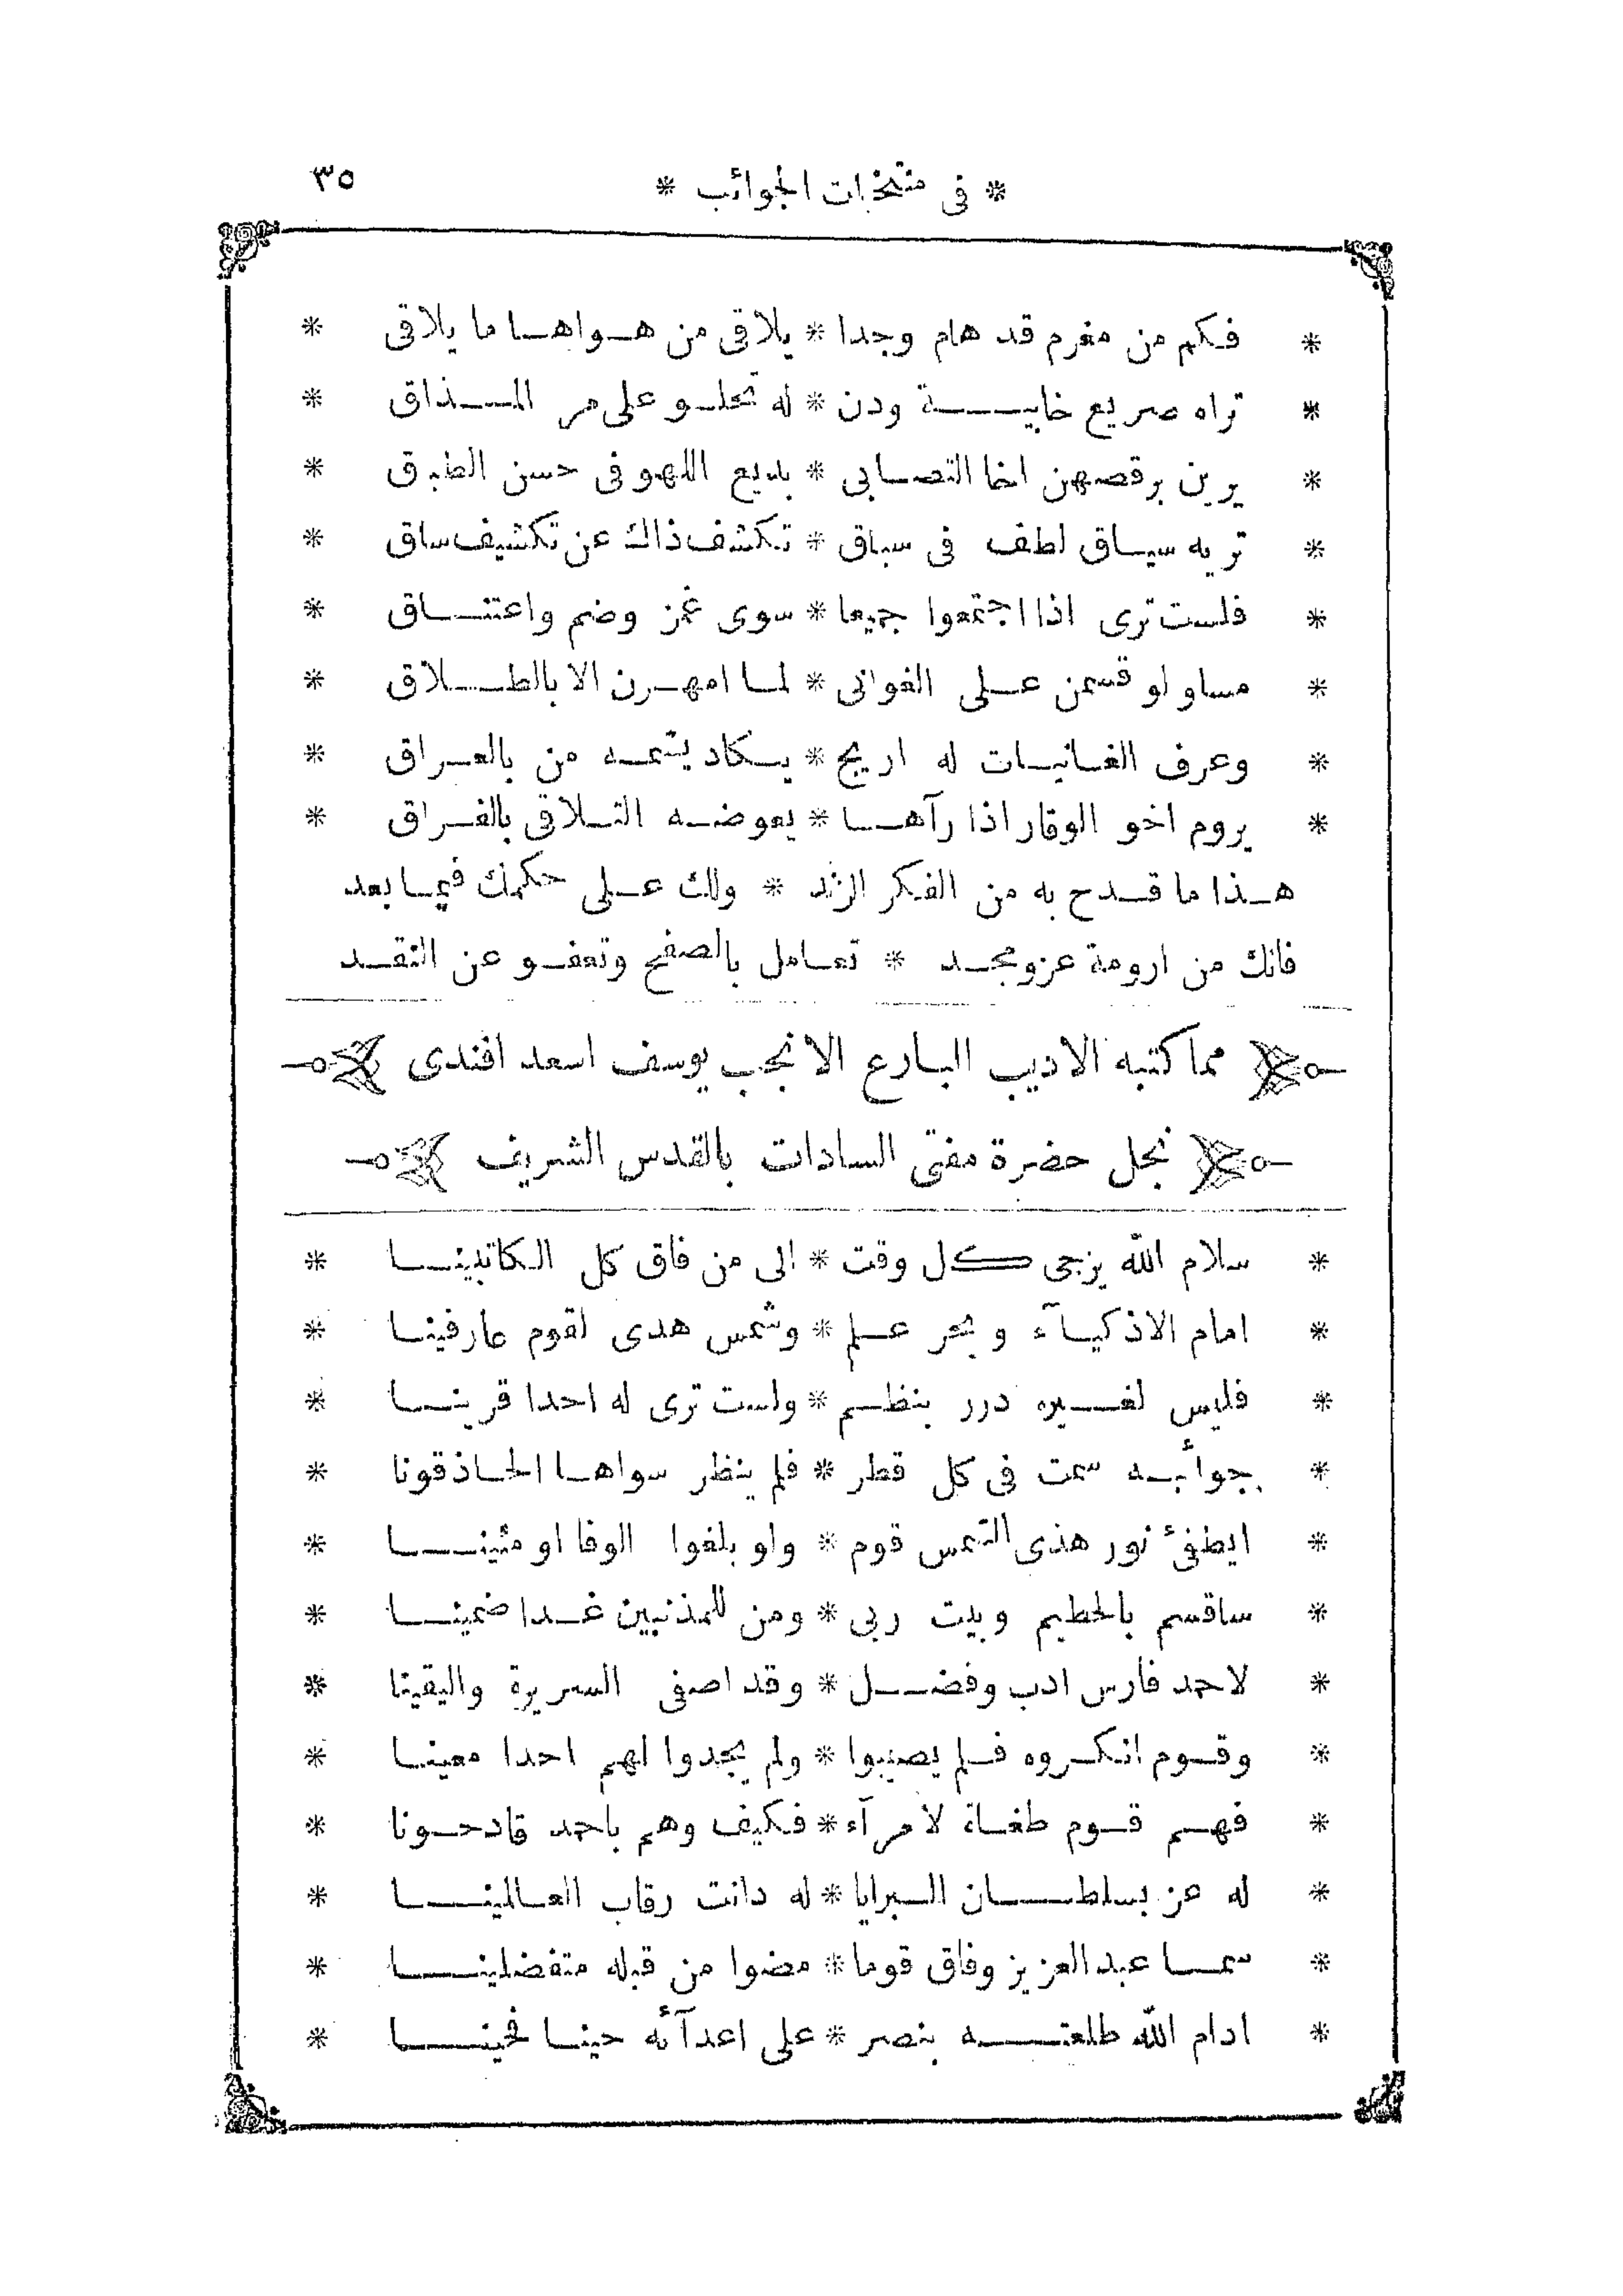 * فى منتخبات الجوائب * ٣٥
* فكم من مغرم قد هام وجدا * يلاقى من هواها ما يلاقى *
* تراه صريع خابية ودن * له تحلو على مر المذاق *
* يرين برقصهن اخا التصابى * بديع اللهو فى حسن الطباق *
* تريه سياق لطف فى سباق * تكشف ذاك عن تكشيف ساق *
* فلست ترى اذا اجتمعوا جميعا * سوى غمز وضم واعتناق *
* مساو لو قسمن على الغوانى * لما امهرن الا بالطلاق *
* وعرف الغانيات له اريج * يكاد يشمه من بالعراق *
* يروم اخو الوقار اذا رآها * يعوضه التلاقى بالفراق *
هذا ما قدح به من الفكر الزند * ولك على حكمك فيما بعد
فانك من ارومة عز ومجد * تعامل بالصفح وتعفو عن النقد
مما كتبه الاديب البارع الانجب يوسف اسعد افندى
نجل حضرة مفتى السادات بالقدس الشريف
* سلام الله يزجى كل وقت * الى من فاق كل الكاتبينا *
* امام الاذكيآء وبحر علم * وشمس هدى لقوم عارفينا *
* فليس لغيره درر بنظم * ولست ترى له احدا قرينا *
* جوائبه سمت فى كل قطر * فلم ينظر سواها الحاذقونا *
* ايطفئ نور هذى الشمس قوم * ولو بلغوا الوفا او مئينا *
* ساقسم بالحطيم وبيت ربى * ومن للمذنبين غدا ضمينا *
* لاحمد فارس ادب وفضل * وقد اصفى السريرة واليقينا *
* وقوم انكروه فلم يصيبوا * ولم يجدوا لهم احدا معينا *
* فهم قوم طغاة لامرآء * فكيف وهم باحمد قادحونا *
* له عز بسلطان البرايا * له دانت رقاب العالمينا *
* سما عبد العزيز وفاق قوما * مضوا من قبله متفضلينا *
* ادام الله طلعته بنصر * على اعدآئه حينا فحينا *